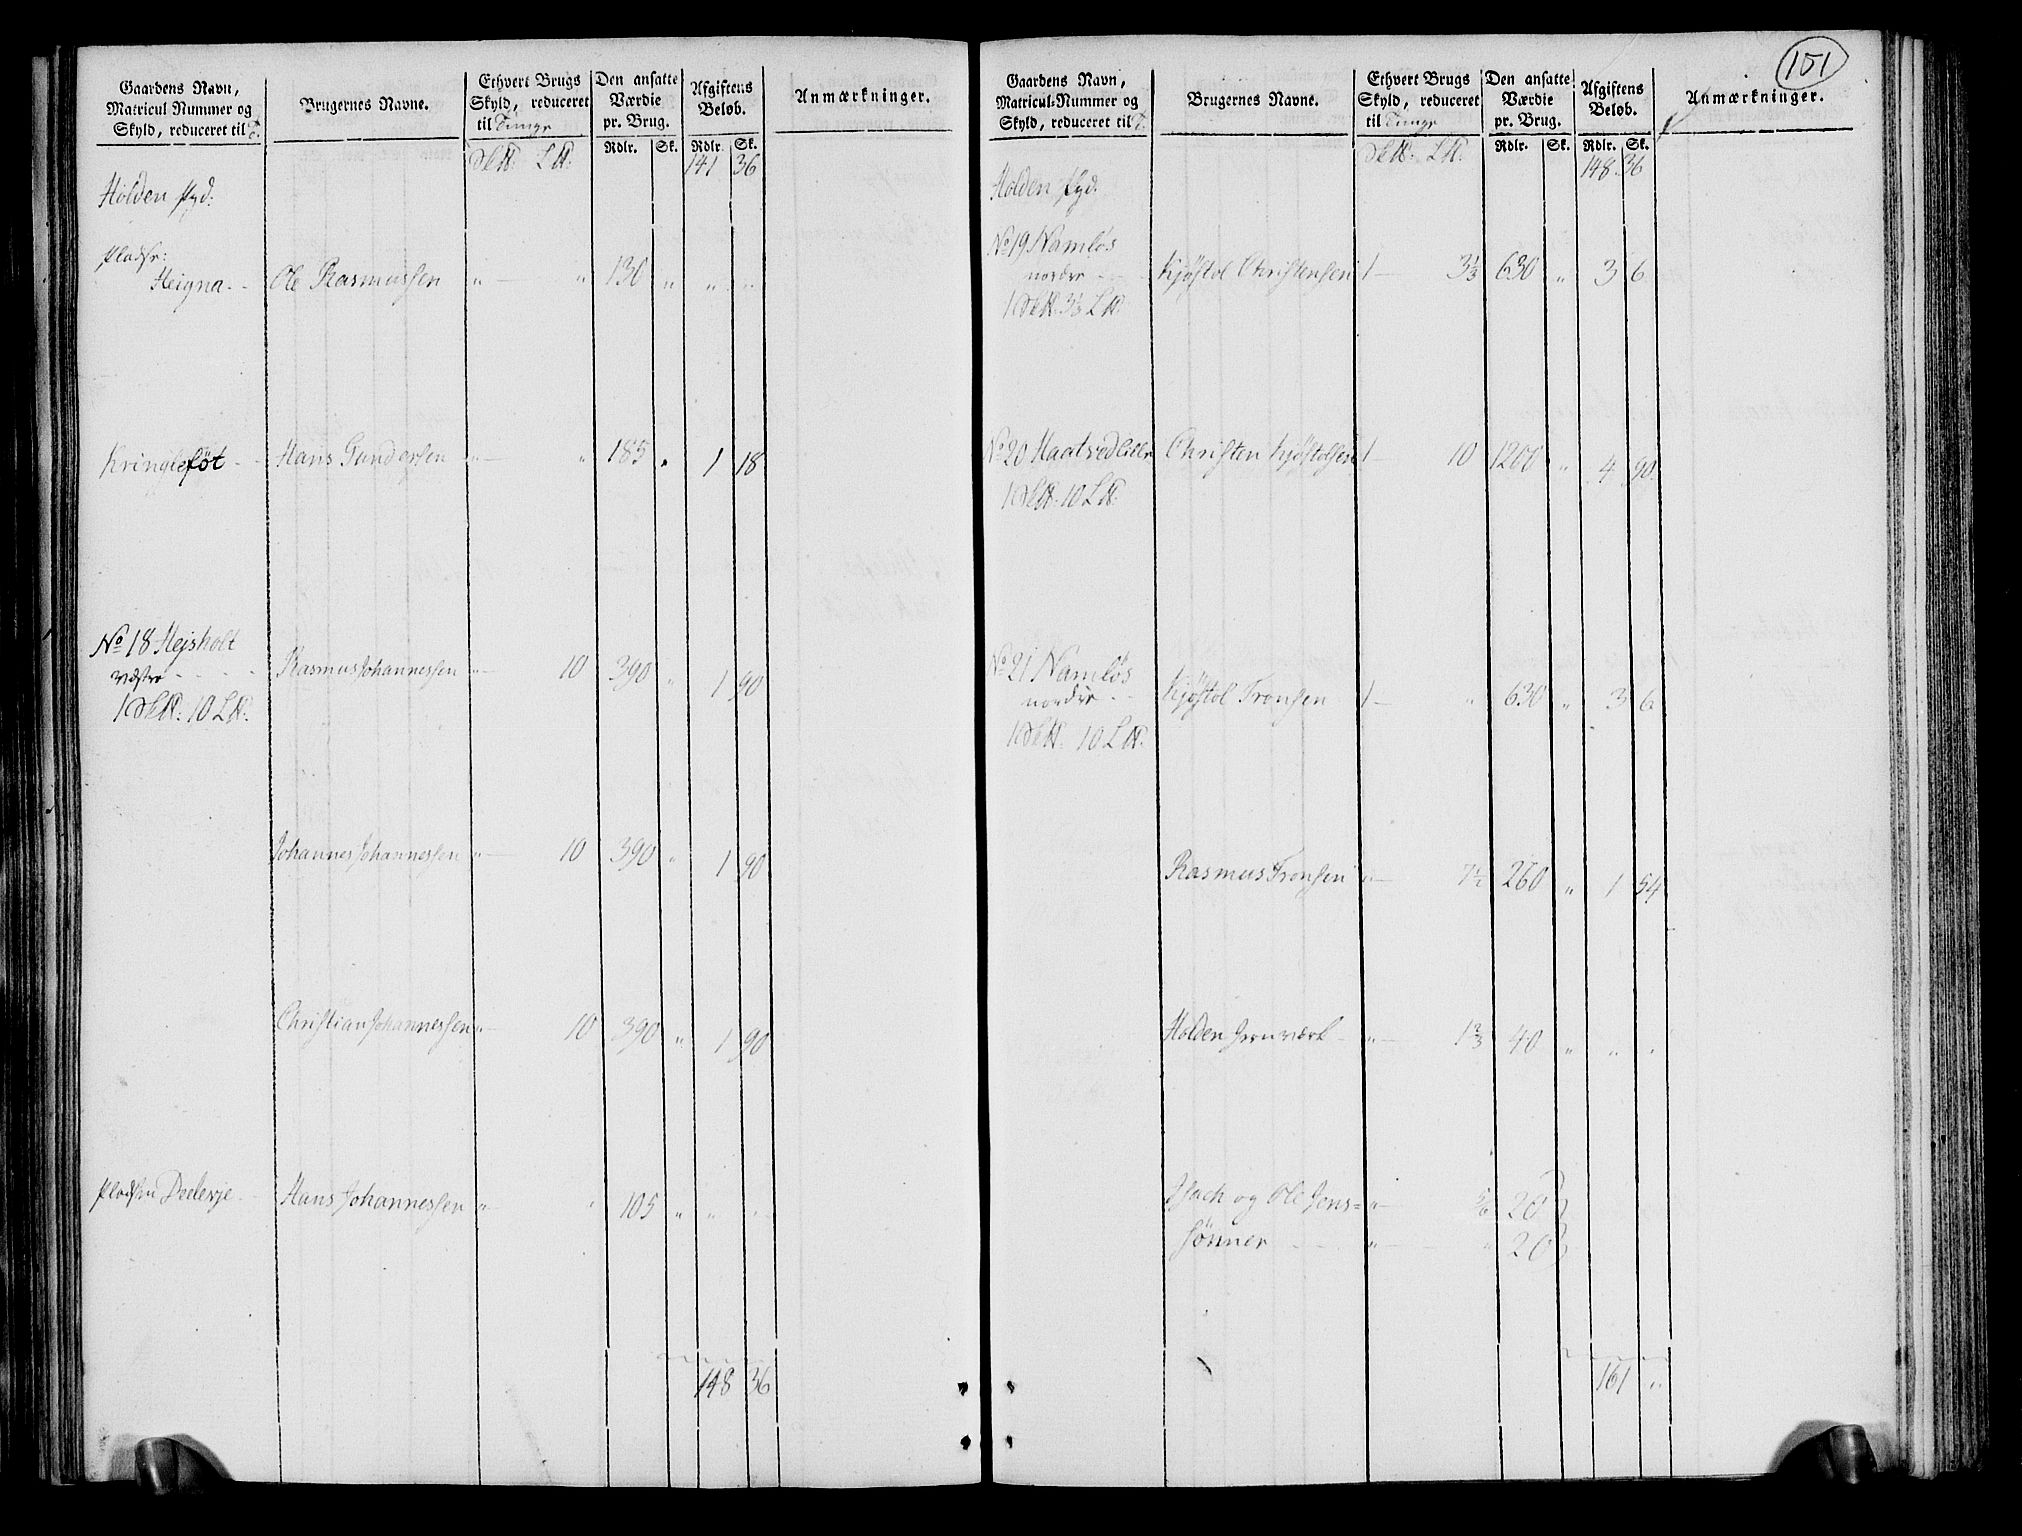 151
Gaardens Navn,
Matricul Nummer og
Skyld, reduceret til T.
Brugernes Navne.
Ethvert Brugs
Skyld, reduceret
til Tunge
Den ansatte
Værdie
pr. Brug.
Afgiftens
Beløb.
Anmærkninger.
Rdlr. Sk. Rdlr. Sk.
141 36
Holden
Pladsr:
Heigna Ole Rasmussen " " 130 " " "
Kringlefôt Hans Gundersen " " 185 " 1 18
No 18 Hejsholt
vestre Rasmus Johannessen " 10 390 " 1 90
Johannes Johannessen " 10 390 " 1 90
Christian Johannessen " 10 390 " 1 90
Pladsen Hans Johannessen " " 105 " " "
148 36
Gaardens Navn,
Matricul-Nummer og
Skyld, reduceret til T.
Brugernes Navne.
Ethvert Brugs
Skyld, reduceret
til Tunge
Den ansatte
Værdie
pr. Brug.
Afgiftens
Beløb.
Anmærkninger.
Rdlr. Sk. Rdlr. Sk.
148 36
Holden
No 19 Namløs
nordre Kjøstol Christensen 1 3⅓ 630 " 3 6
No 20 Christen Kjøstolsen 1 10 1200 " 4 90
No 21 Namløs
nordre Kjøstol Tronsen 1 " 630 " 3 6
Rasmus Tronsen " 7½ 260 " 1 54
Holden Jernværk " 1⅔ 40 " " "
Isach og Ole Jens= " ⅚ 20
sønner " " 20
161 "